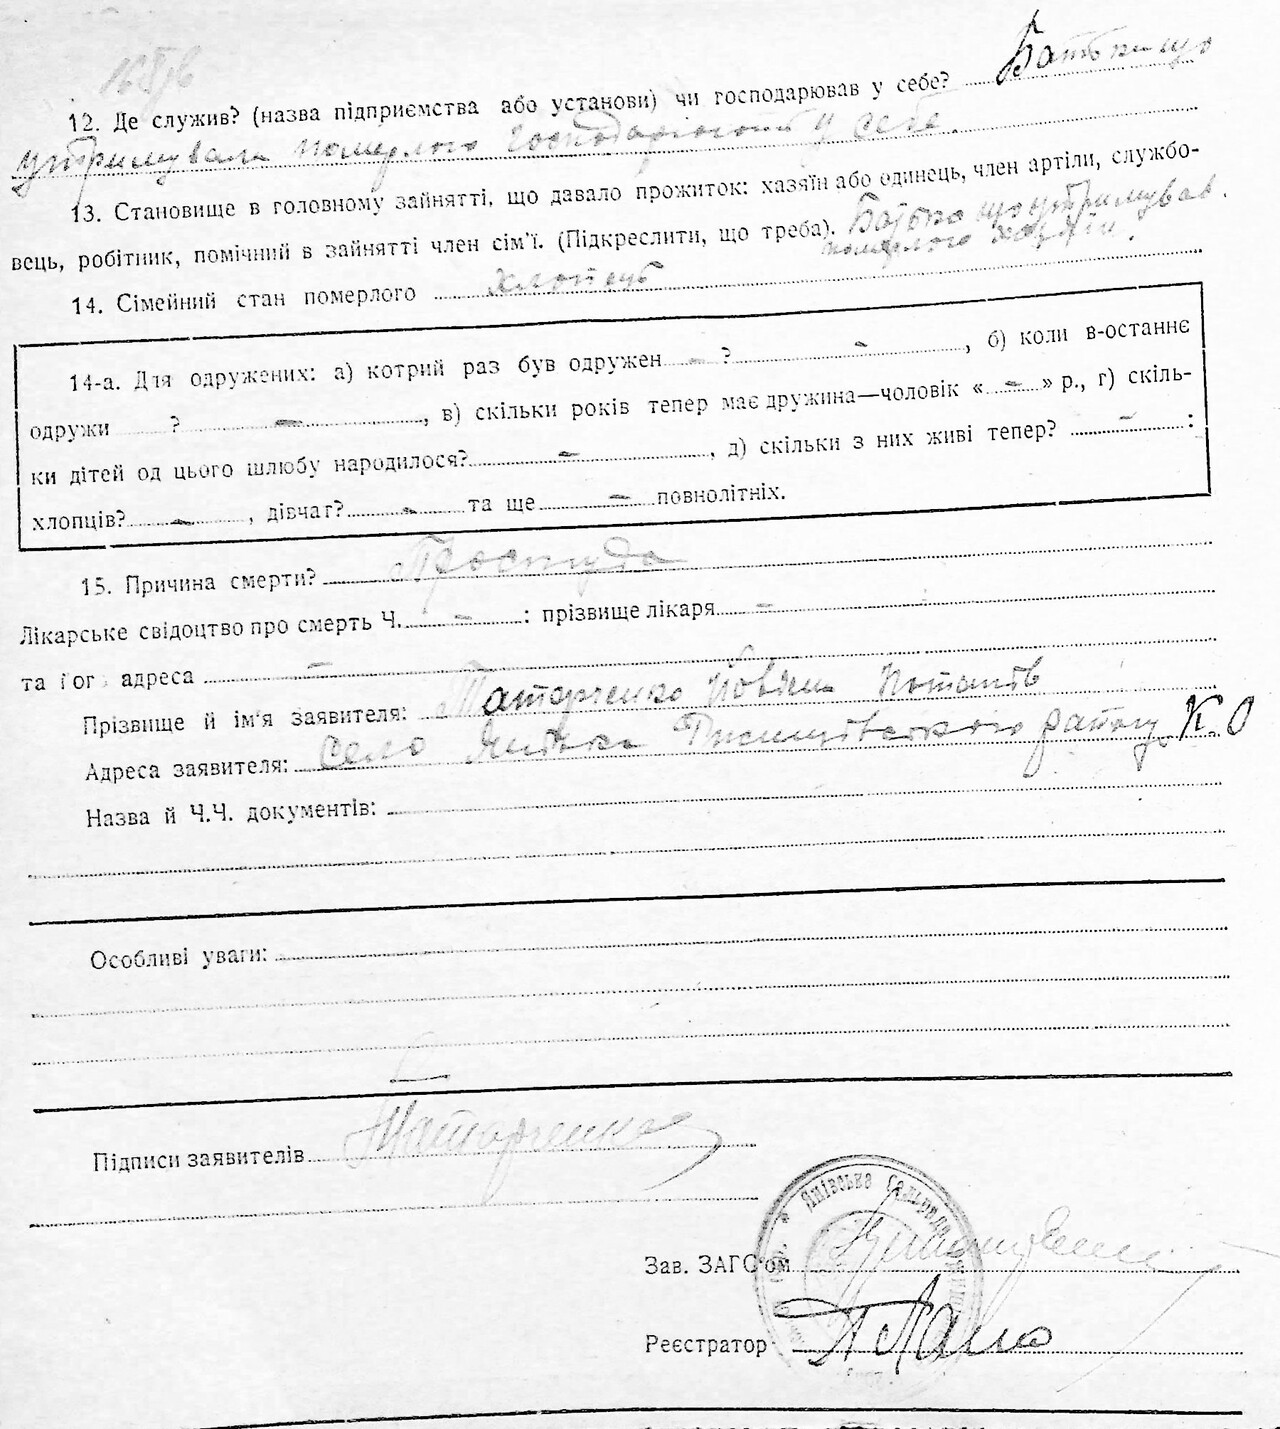 12. Де служив? (назва підприємства або установи) чи господарював у себе? Батьки що
утримували померлого господарювали у себе.
13. Становище в головному зайнятті, що давало прожиток: хазяїн або одинець, член артіли, службо-
вець, робітник, помічний в зайнятті член сім'ї. (Підкреслити, що треба). Батько що утримував
померлого хазяїн.
14. Сімейний стан померлого хлопець
14-а. Для одружених: а) котрий раз був одружен - ? - , б) коли в-останнє
одружи ? - , в) скільки років тепер має дружина—чоловік « - » р., г) скіль-
ки дітей од цього шлюбу народилося? - , д) скільки з них живі тепер? - :
хлопців? - , дівчаг? - та ще - повнолітніх.
15. Причина смерти? Простуда
Лікарське свідоцтво про смерть Ч. - : прізвище лікаря -
та йог адреса -
Прізвище й ім'я заявителя: Татарченко Потапів
Адреса заявителя: село району К.О
Назва й Ч.Ч. документів:
Особливі уваги:
Підписи заявителів Татарченко
Янівська Сельрада
Зав. ЗАГС'ом
Реєстратор